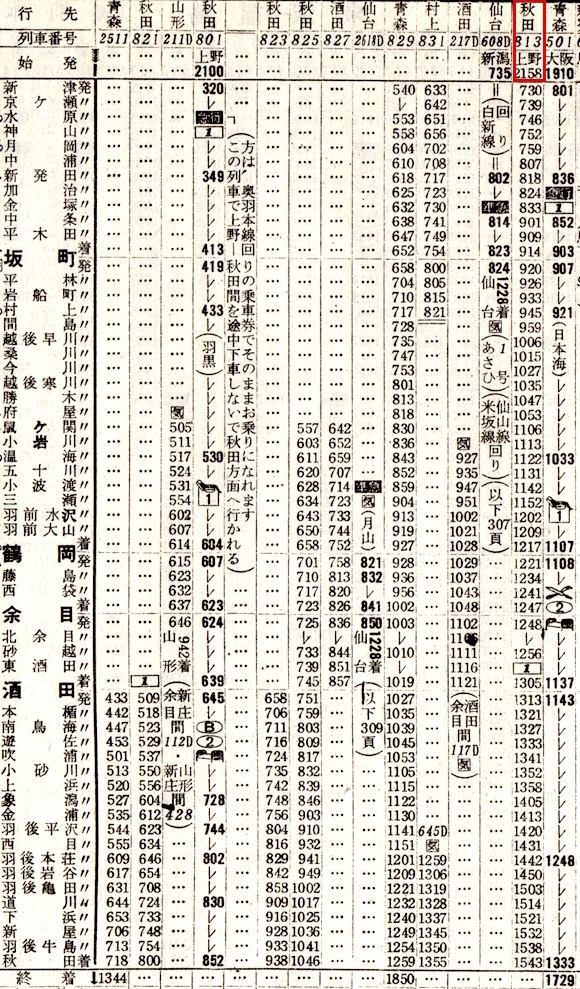 行先 青森 秋田 山形 秋田 秋田 秋田 酒田 仙台 青森 村上 酒田 仙台 秋田 青森
列車番号 2511 821 211D 801 823 825 827 2618D 829 831 217D 608D 813 501
始発 上野 2100 新潟 735 上野 2158 大阪 1910
新津発 320 540 633 730 801
京ヶ瀬〃 642 739
水原〃 急行 553 651 746
神山〃 1 558 656 752
月岡〃 604 702 759
中浦〃 610 708 807
新発田〃 349 618 717 802 818 836
加治〃 625 723 824 急行
金塚〃 632 730 準急 833 1
中条〃 638 741 814 901 852
平木田〃 647 749 909
坂町着 413 652 754 823 914 903
発 419 658 800 824 920 907
平林〃 704 805 926
岩船町〃 710 815 933
村上〃 433 717 821 945 921
間島〃 728 959
越後早川〃 735 1006
桑川〃 747 1015
今川〃 753 1027
越後寒川〃 801 1035
勝木〃 813 1047
府屋〃 818 1053
鼠ヶ関〃 505 557 642 830 1106
小岩川〃 511 603 652 836 1113
温海〃 517 530 611 659 843 927 1122 1033
五十川〃 524 620 707 852 935 1131
小波渡〃 531 628 714 準急 859 947 1142
三瀬〃 554 1 634 723 904 951 1152
羽前水沢〃 602 643 733 913 1002 1202 1
羽前大山〃 607 650 744 919 1017 1209
鶴岡着 614 604 658 752 927 1028 1217 1107
発 615 607 701 758 821 928 1029 1221 1108
藤島〃 623 710 813 832 936 1037 1234
西袋〃 632 717 820 956 1043 1241
余目着 637 623 723 826 841 1002 1048 1247 2
発 646 624 725 836 850 1003 1102 1248
北余目〃
砂越〃 733 844 1111 1256
東酒田〃 739 851 1116 1
酒田着 1 639 745 857 1019 1121 1305 1137
発 433 509 645 658 751 1027 1313 1143
本楯〃 442 518 706 759 1035 1321
南鳥海〃 447 523 B 711 803 1039 1327
遊佐〃 453 529 2 716 809 1045 1333
吹浦〃 501 537 724 817 1053 1341
小砂川〃 513 550 735 832 1105 1352
上浜〃 520 556 742 839 1115 1358
象潟〃 527 604 728 748 846 1122 1405
金浦〃 535 612 756 903 1130 1413
羽後平沢〃 544 623 744 804 910 1141 645D 1420
西目〃 555 634 816 932 1151 1431
羽後本荘〃 609 646 802 829 941 1201 1259 1442 1248
羽後岩谷〃 617 654 842 949 1209 1306 1450
羽後亀田〃 631 708 858 1002 1221 1319 1503
道川〃 644 724 830 909 1017 1232 1328 1514
下浜〃 653 733 916 1025 1240 1337 1521
新屋〃 706 748 928 1036 1249 1345 1532
羽後牛島〃 713 754 933 1041 1254 1350 1538
秋田着 718 800 852 938 1046 1259 1355 1543 1333
終着 1344 1850 1729
山形着 942
(余目 新庄間 112D
新庄 山形間 428)
(羽黒)
(この列車で上野 秋田間を途中下車しないで秋田方面へ行かれる
方は、奥羽本線回りの乗車券でそのままお乗りになれます)
(月山)
仙台着 1228
(以下309頁)
(余目 酒田間 117D)
(白新線回り)
仙台着 1228
(あさひ1号)
(米坂線 仙山線回り)
(以下307頁)
(日本海)